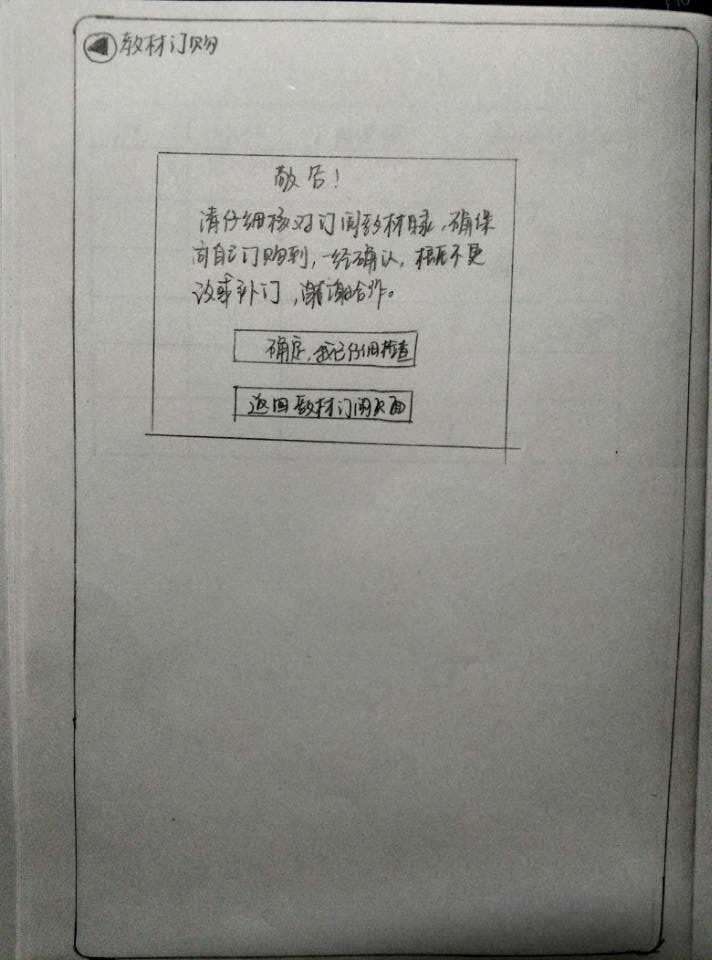 教材订购
敬告!
请仔细核对订阅教材目录,确保
向自己订购到,一经确认,概不更
改或补订,谢谢合作。
确定,我已仔细检查
返回教材订阅页面